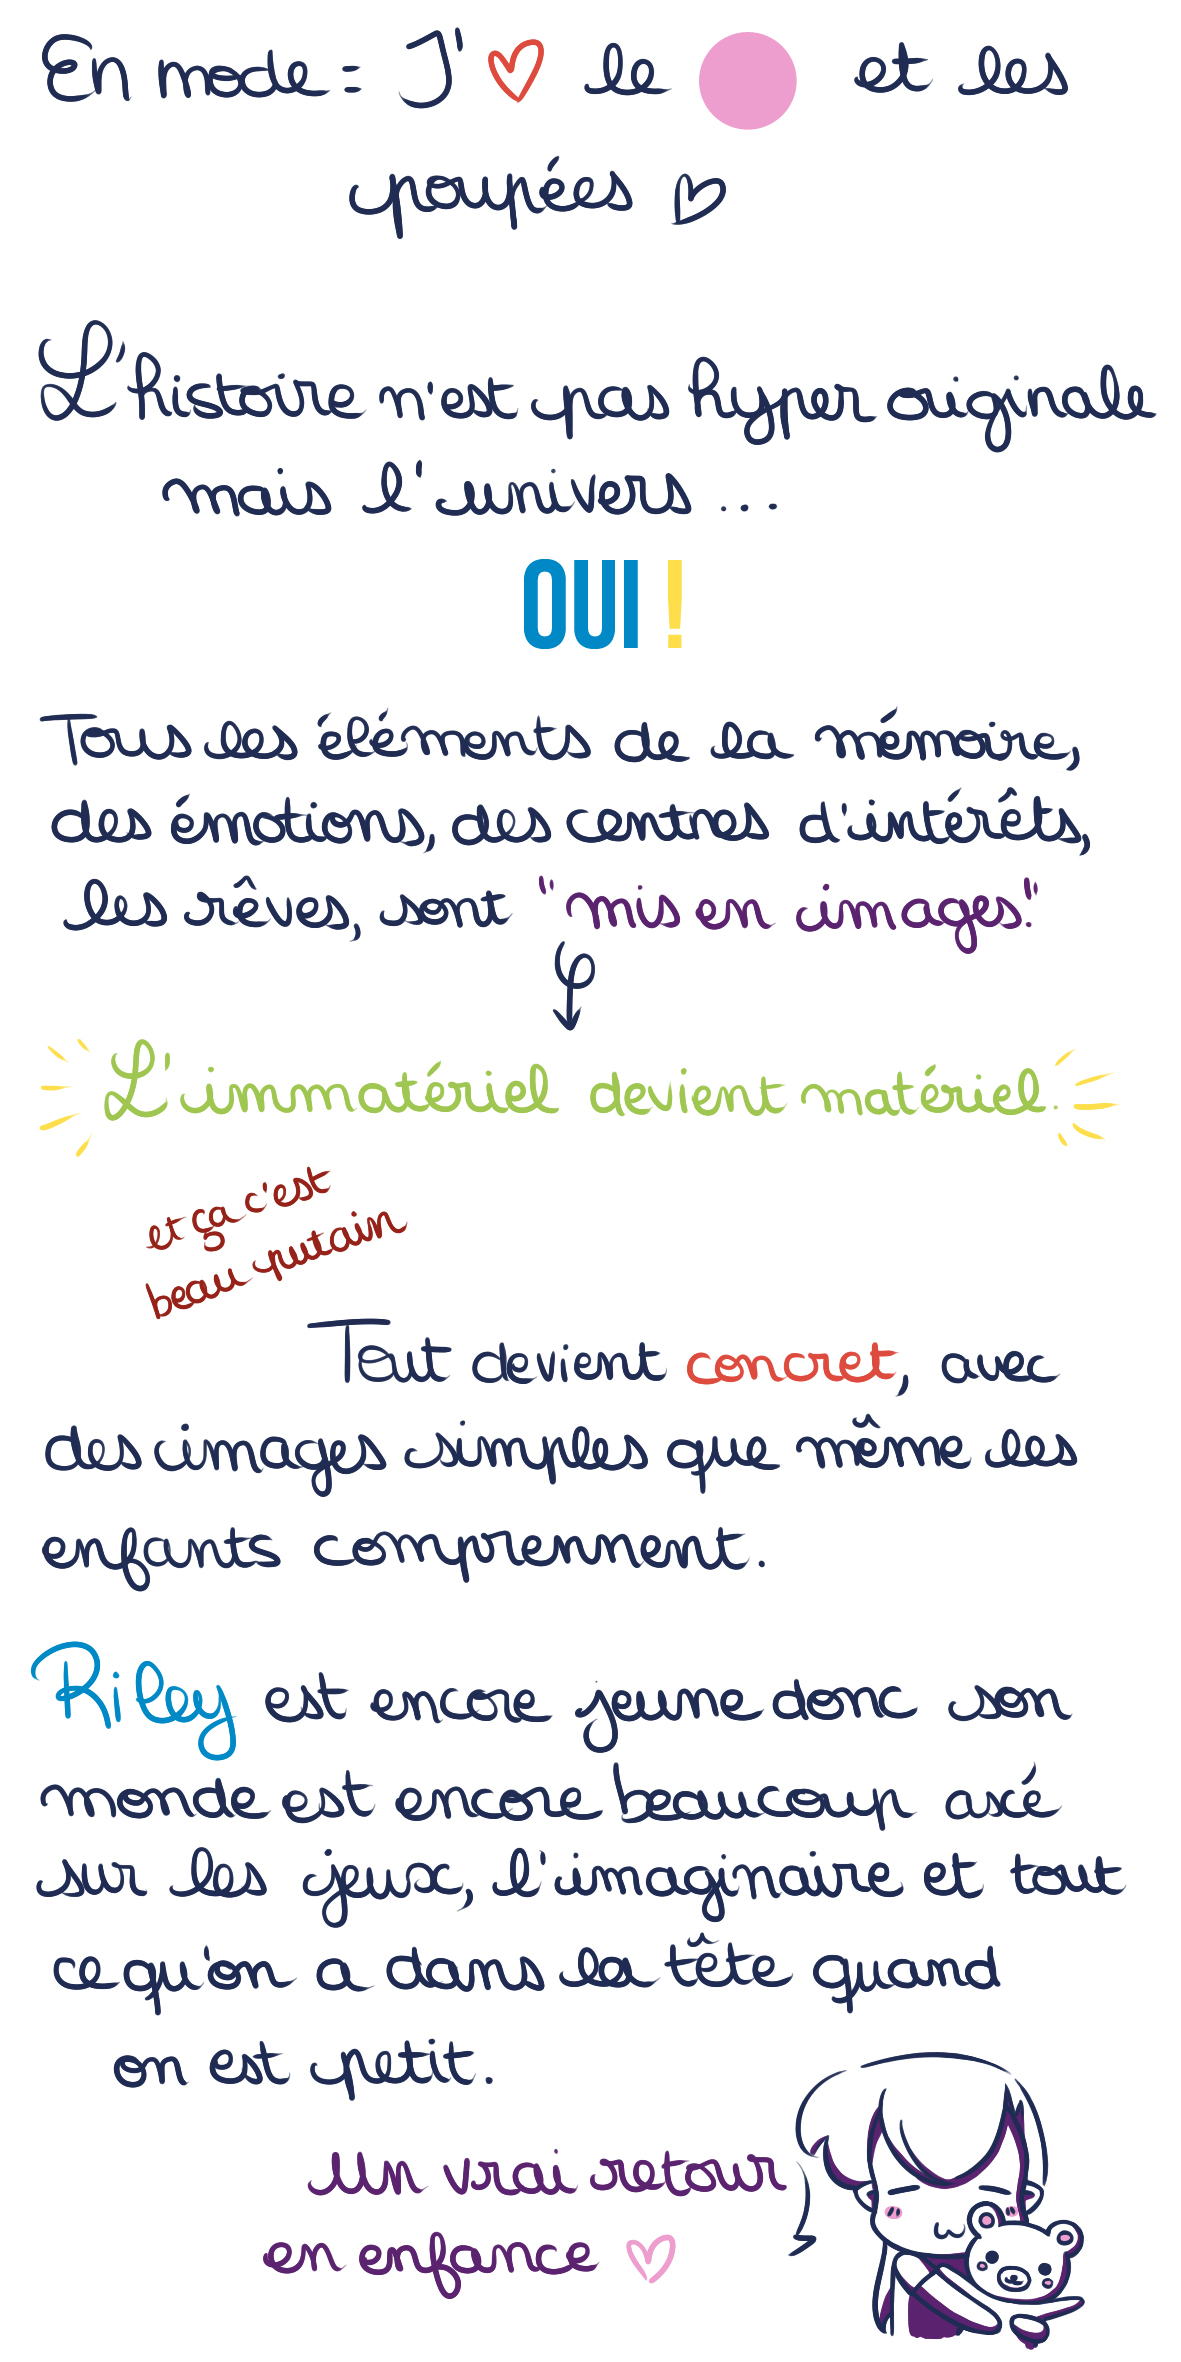 En mode = J' ♡ le et les
poupées ♡
L'histoire n'est pas hyper originale
mais l'univers ...
OUI !
Tous les éléments de la mémoire,
des émotions, des centres d'intérêts,
les rêves, sont "mis en images".
L'immatériel devient matériel.
et ça c'est
beau putain
Tout devient concret, avec
des images simples que même les
enfants comprennent.
Riley est encore jeune donc son
monde est encore beaucoup axé
sur les jeux, l'imaginaire et tout
ce qu'on a dans la tête quand
on est petit.
Un vrai retour
en enfance ♡